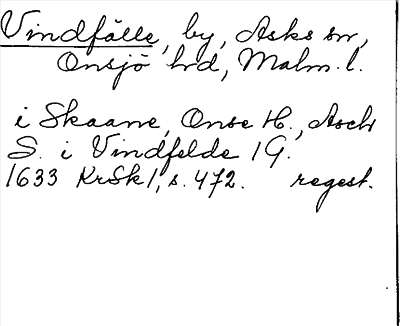 Vindfälle, by, Asks sn,
Onsjö hd, Malm. l.
i Skaane, Onse H., Asch
S. i Vindfelde 1 G.
1633 KrSk 1, s. 472. regest.